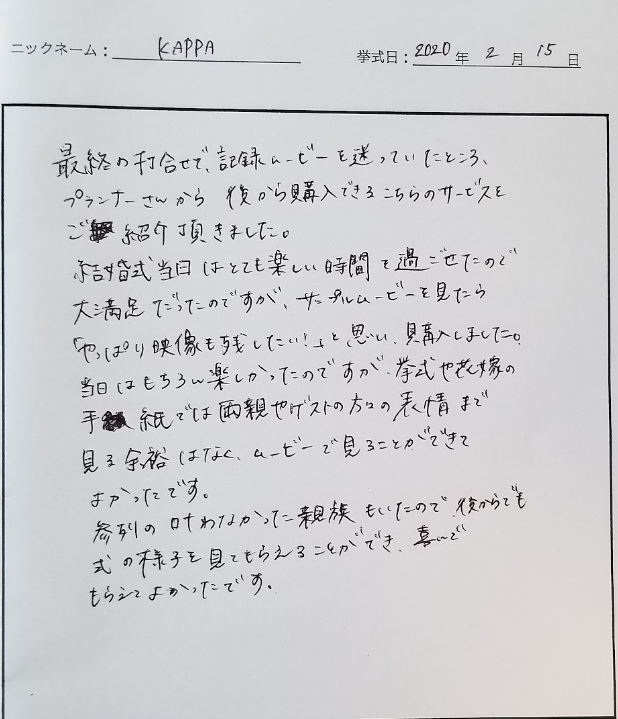 ニックネーム: KAPPA
挙式日: 2020年 2月 15日
最終の打合せで、記録ムービーを迷っていたところ、
プランナーさんから 後から購入できるこちらのサービスを
ご紹介頂きました。
結婚式当日はとても楽しい時間を過ごせたので
大満足だったのですが、サンプルムービーを見たら
「やっぱり映像も残したい!」と思い、購入しました。
当日はもちろん楽しかったのですが、挙式や花嫁の
手紙では両親やゲストの方々の表情まで
見る余裕はなく、ムービーで見ることができて
よかったです。
参列の叶わなかった親族もいたので、後からでも
式の様子を見てもらえることができ、喜んで
もらえてよかったです。